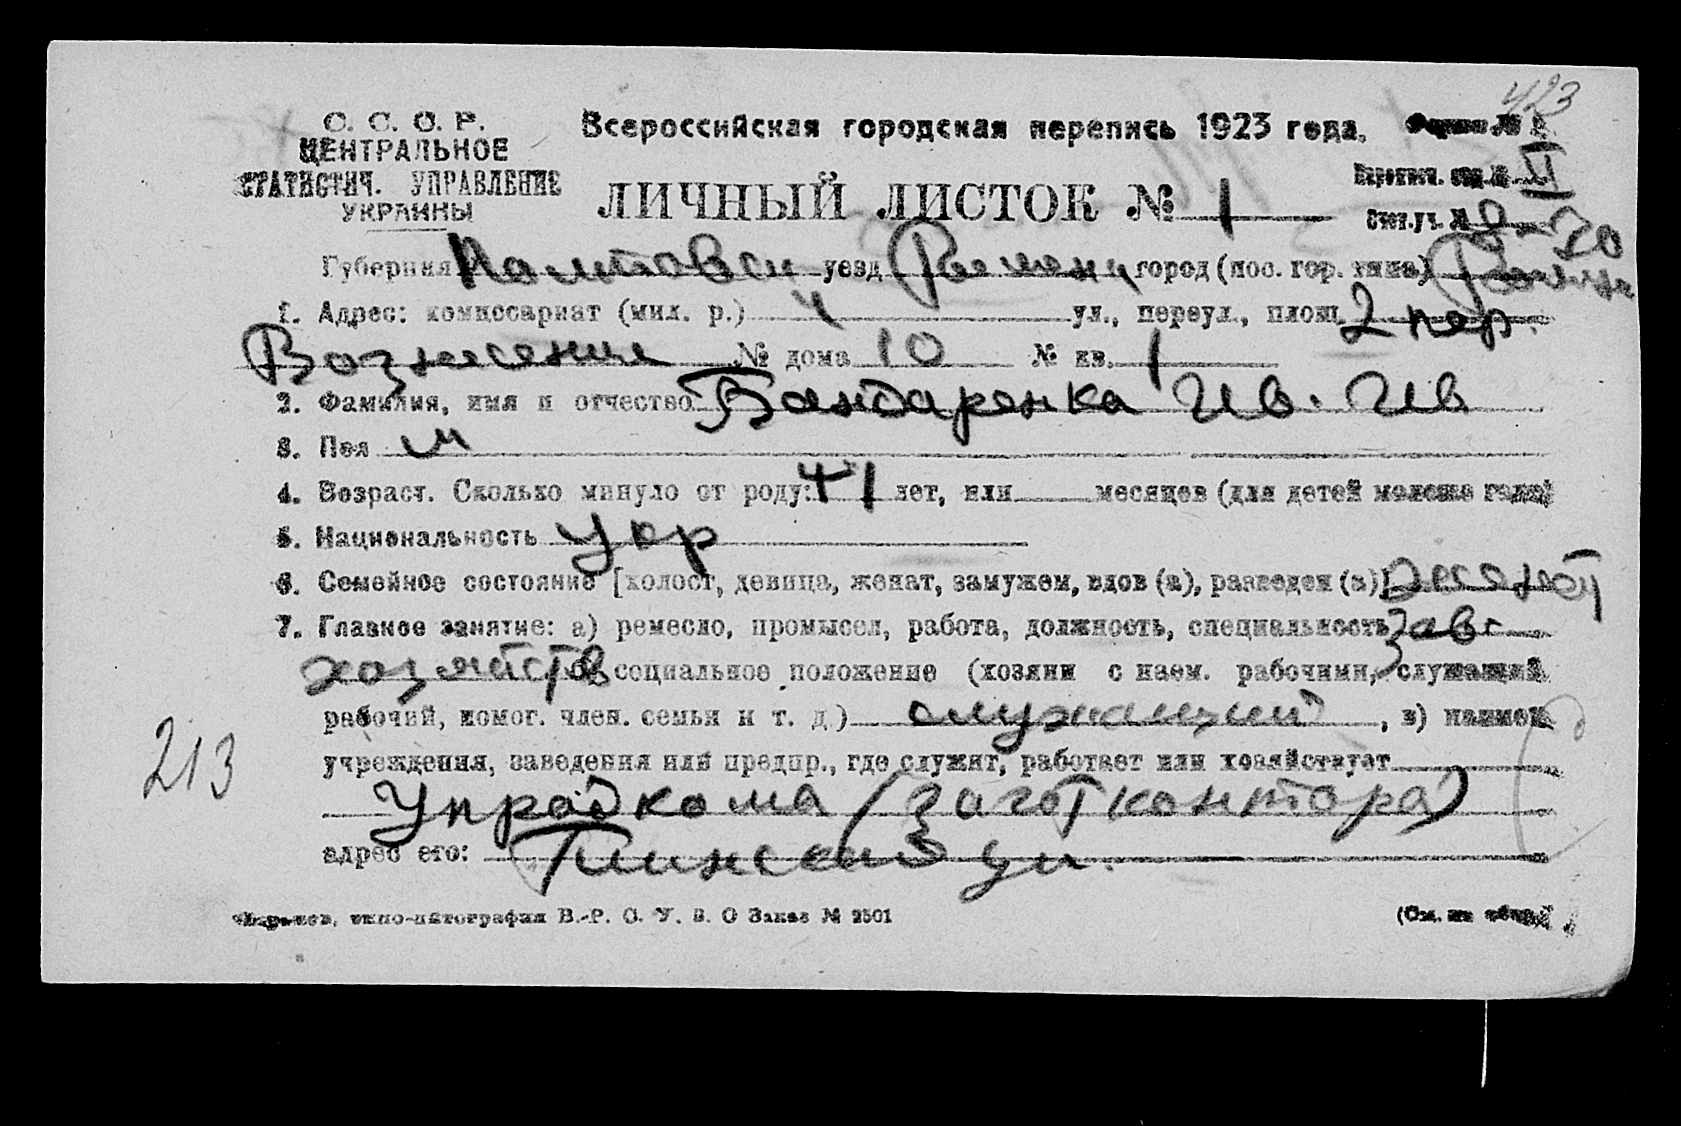 423
С. С. С. Р.
ЦЕНТРАЛЬНОЕ
СТАТИСТИЧ. УПРАВЛЕНИЕ
УКРАИНЫ
Всероссийская городская перепись 1923 года.
Форма №
ЛИЧНЫЙ ЛИСТОК № 1
Губерния Полтовск уезд Роменц город (пос. гор. типа)
1. Адрес: комиссариат (мил. р.) 4 ул., переул., площ. 2 пер.
Вознесенце № дома 10 № кв. 1
2. Фамилия, имя и отчество Бондаренко Ив. Ив
3. Пол м
4. Возраст. Сколько минуло от роду: 41 лет, или месяцев (для детей моложе года)
5. Национальность укр
6. Семейное состояние [холост, девица, женат, замужем, вдов (а), разведен (а)] женат
7. Главное занятие: а) ремесло, промысел, работа, должность, специальность Зав.
хозяйств б) социальное положение (хозяин с наем. рабочими, служащий
рабочий, помог. член. семьи и т. д.) служащий, в) наимен.
учреждения, заведения или предпр., где служит, работает или хозяйствует
Упродкома (Заготконтора)
адрес его: ул.
213
Харьков, типо-литография В.-Р. С. У. В. О Заказ № 2501
(См. на обор.)